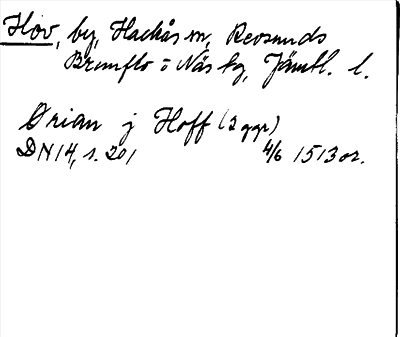 Hov, by, Hackås sn, Revsunds
Brunflo o Näs tg, Jämtl. l.
Ørian j Hoff (2 ggr)
DN14, s. 201 4/6 1513 or.